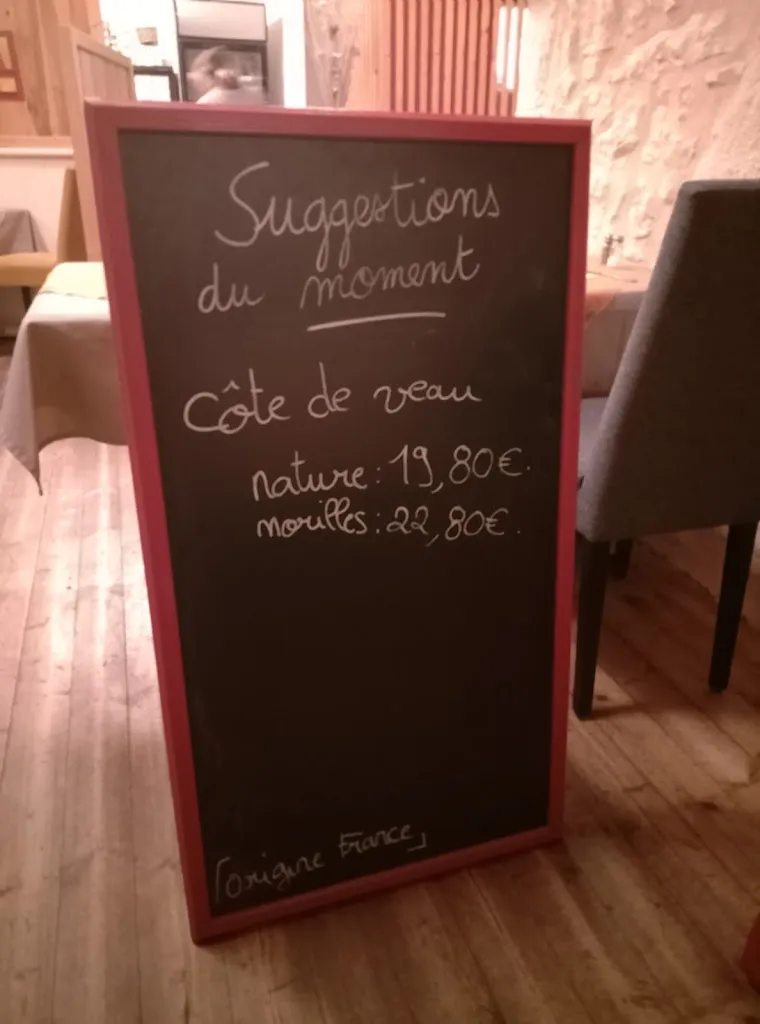 Suggestions
du moment
Côte de veau
nature : 19,80€.
morilles : 22,80€.
[origine France]